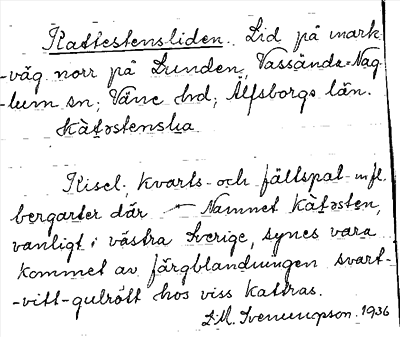 Kattestensliden. Lid på mark-
-väg norr på Lunden, Vassända-Nag-
-lum sn; Väne hd; Älfsborgs län.
Kisel, kvarts- och fältspat- m fl.
bergarter där — Namnet
vanligt i västra Sverige, synes vara
kommet av färgblandningen svart-
-vitt-gulrött hos viss kattras.
1936